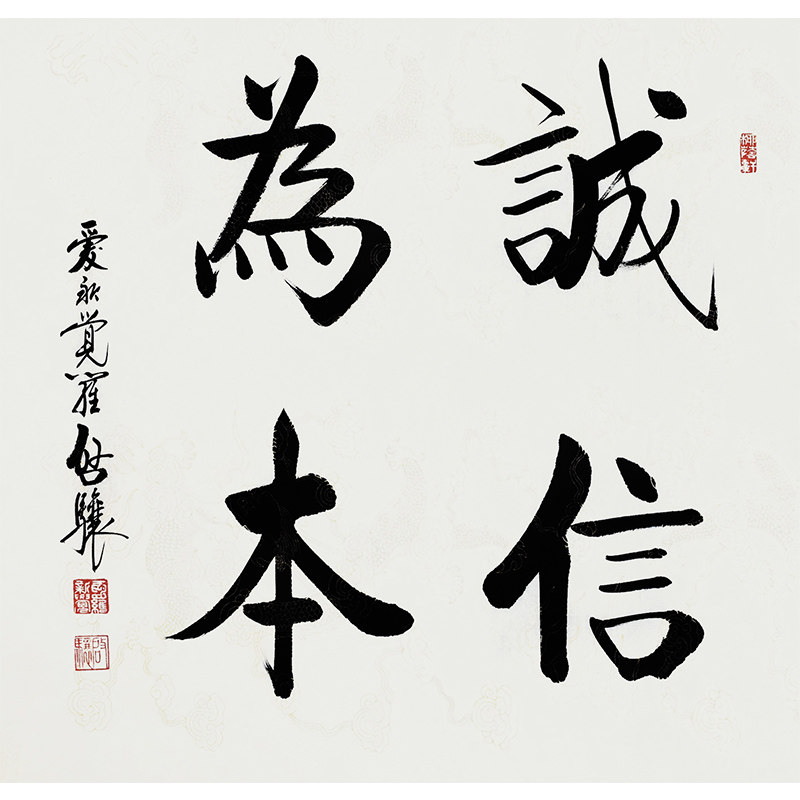 誠信
為本
愛新覺羅啓驤